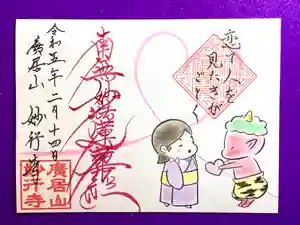 恋す人を
見たさが
ごとく
南無妙法蓮華経
令和五年二月十四日
廣居山 妙行寺
廣居山
妙行寺